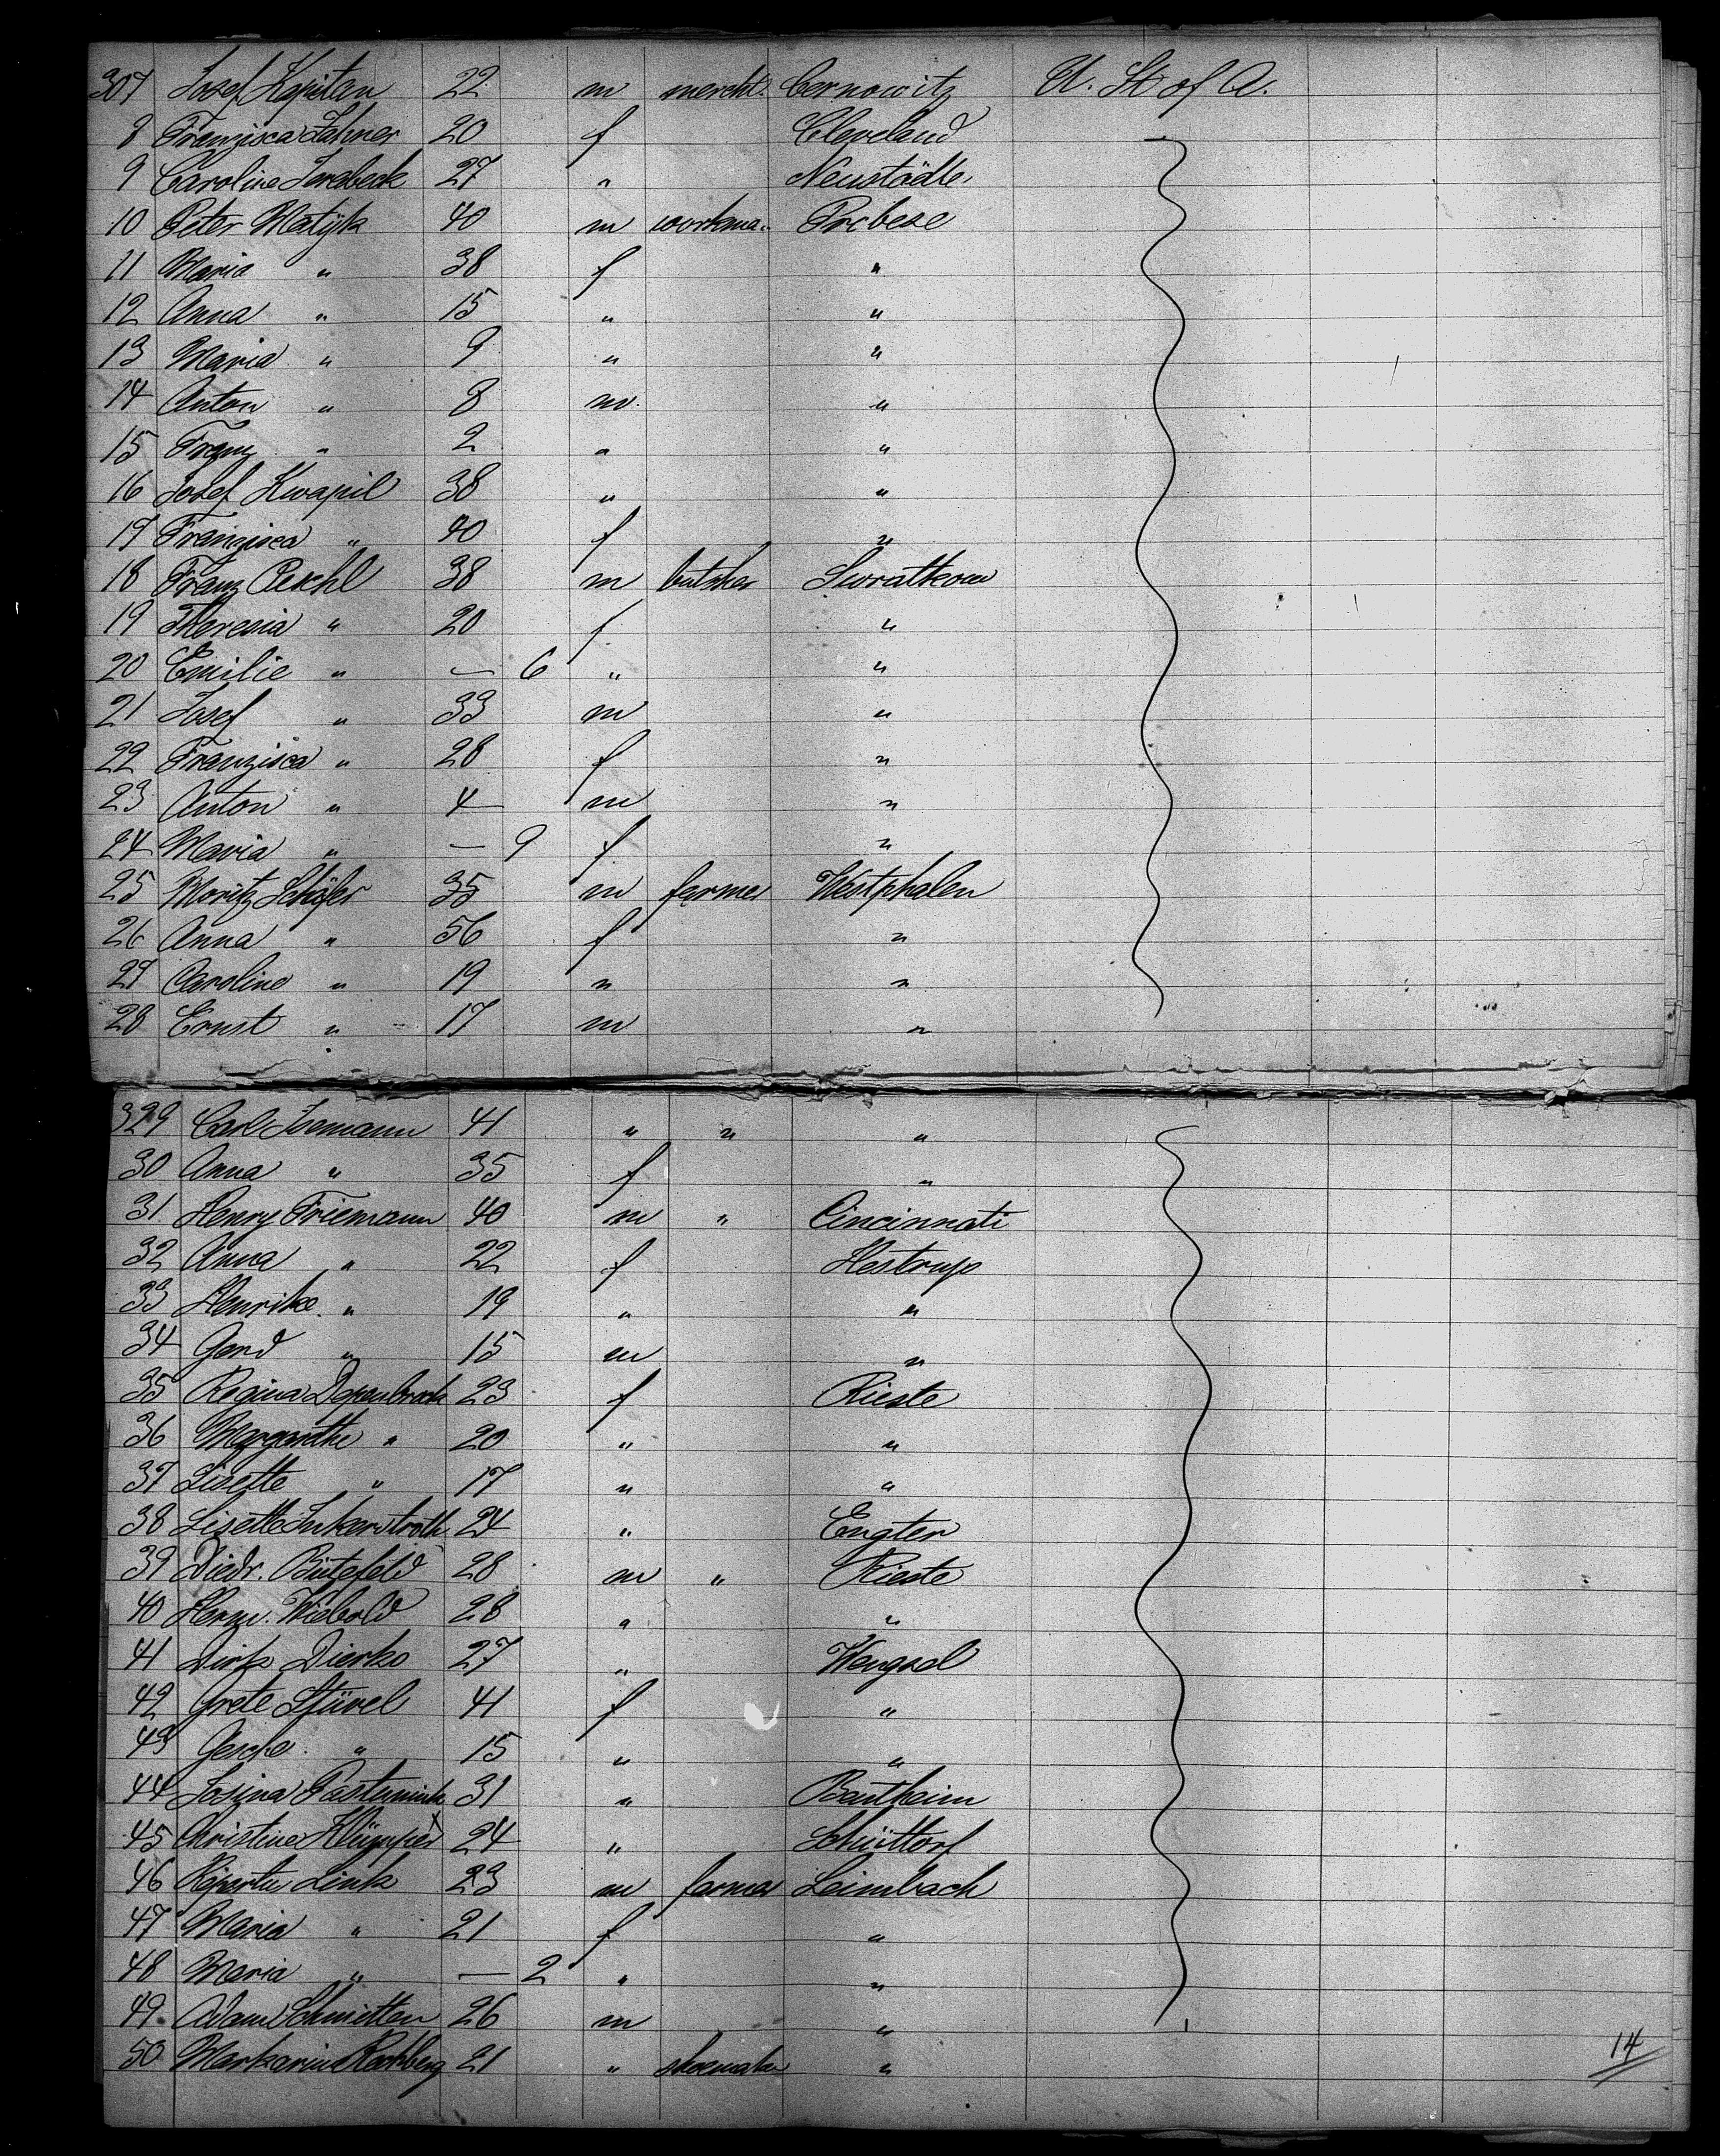 307 Josef Kapitan 22 m mercht. Cernowitz U. St of A.
8 Franzisca Lahner 20 f Cleveland
9 Caroline 27 " Neustädtle
10 Peter Matijk 40 m workman Probese
11 Maria " 38 f "
12 Anna " 15 " "
13 Maria " 9 " "
14 Anton " 8 m "
15 Franz " 2 " "
16 Josef Kwapil 38 " "
17 Franzisca " 40 f "
18 Franz Pechl 38 m butsher Swratkow
19 Theresia " 20 f "
20 Emilie " — 6 " "
21 Josef " 33 m "
22 Franzisca " 28 f "
23 Anton " 4 m "
24 Maria " — 9 f "
25 Moritz Schäfer 35 m farmer Westphalen
26 Anna " 56 f "
27 Caroline " 19 " "
28 Ernst " 17 m "
329 Carl Isemann 41 " " "
30 Anna " 35 f "
31 Henry Friemann 40 m " Cincinnati
32 Anna " 22 f Hestrup
33 Henrike " 19 " "
34 Gerd " 15 m "
35 Regina Depenbrock 23 f Rieste
36 Margarethe " 20 " "
37 Lisette " 17 " "
38 Lisette Inkerstroth 24 " Engter
39 Diedr. Butefeld 28 m " Rieste
40 Herm. Wiebold 28 " "
41 Dirk Dierks 27 " Wengsel
42 Grete Stüvel 41 f "
43 Gesche " 15 " "
44 Josina 31 " Bentheim
45 Christine Klümper 24 " Schüttorf
46 Link 23 m farmer Leimbach
47 Maria " 21 f "
48 Maria " — 2 " "
49 Adam Schmitten 26 m "
50 21 " shoemaker "
14